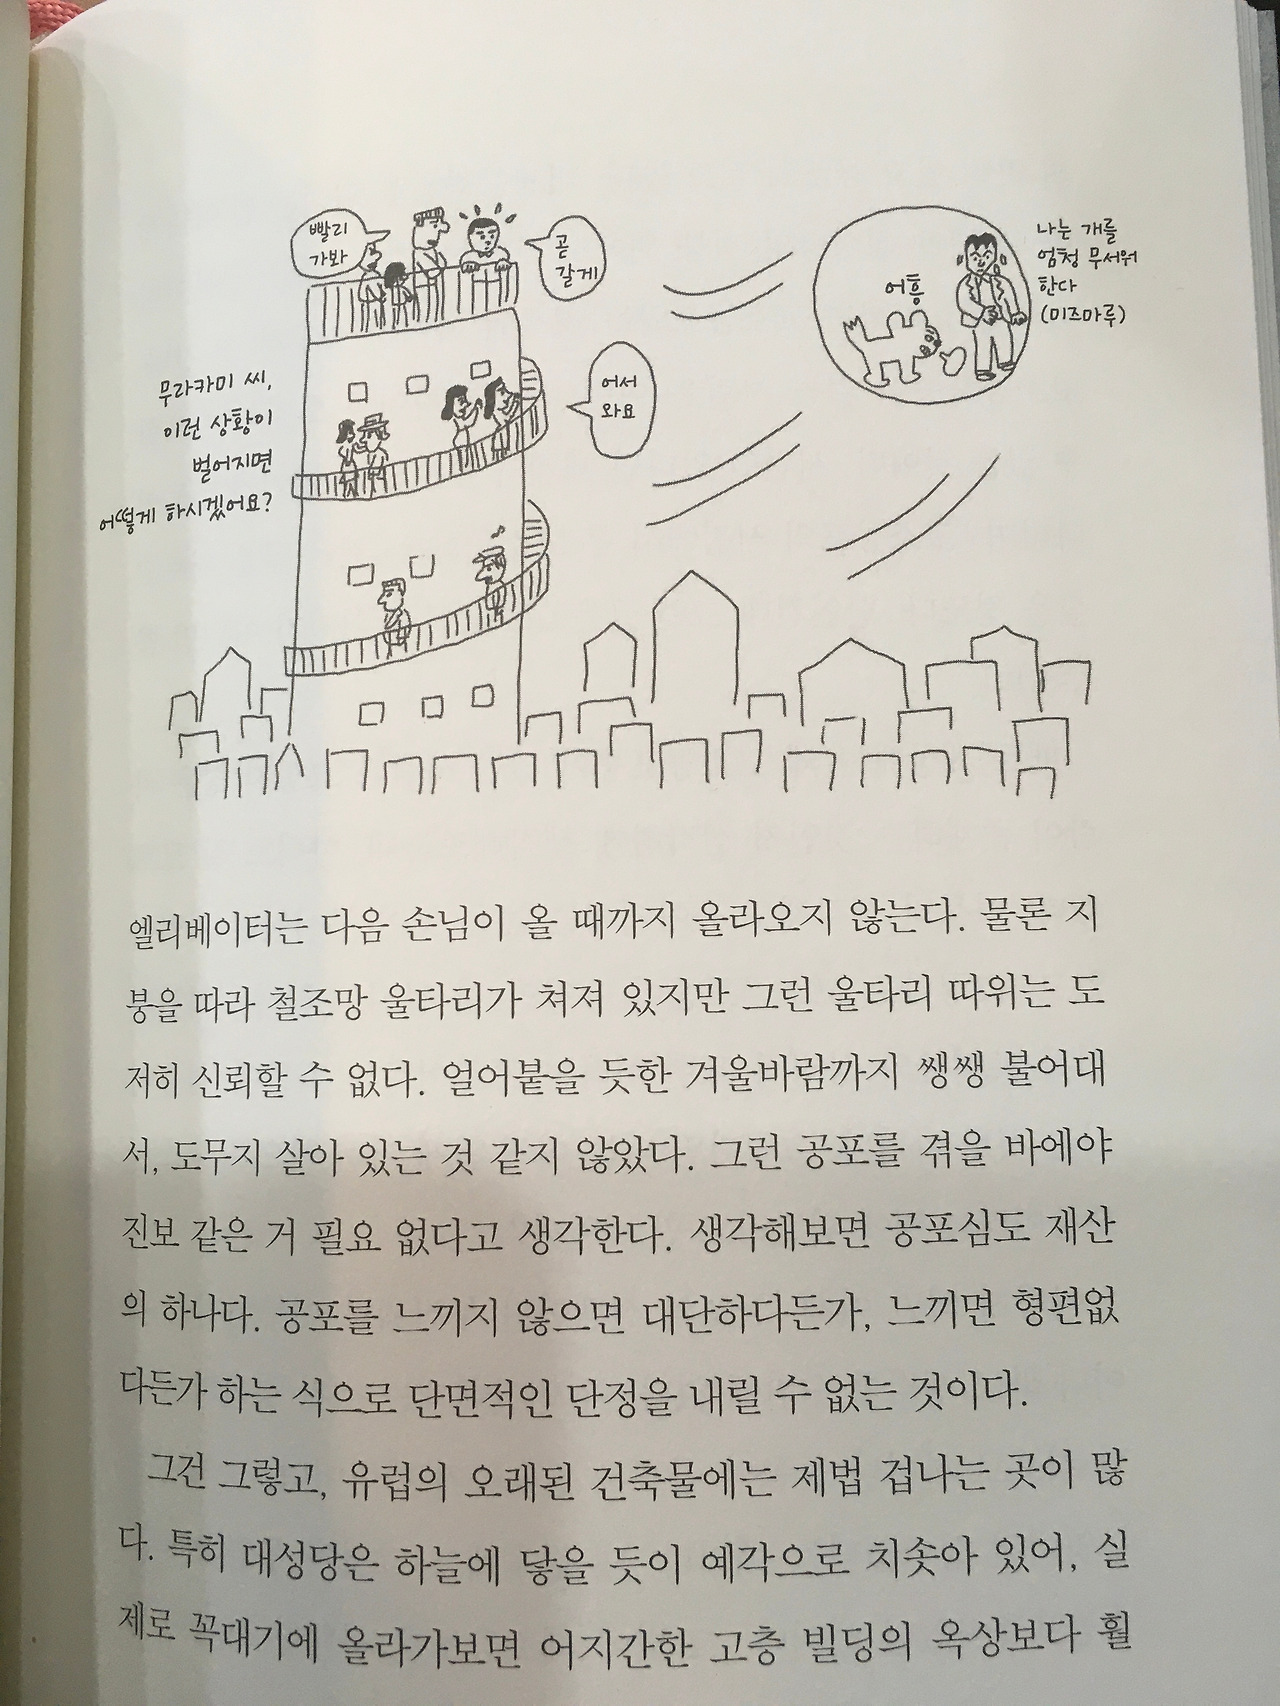 빨리
가봐
곧
갈게
어흥
나는 개를
엄청 무서워
한다
(미즈마루)
무라카미 씨,
이런 상황이
벌어지면
어떻게 하시겠어요?
어서
와요
엘리베이터는 다음 손님이 올 때까지 올라오지 않는다. 물론 지
붕을 따라 철조망 울타리가 쳐져 있지만 그런 울타리 따위는 도
저히 신뢰할 수 없다. 얼어붙을 듯한 겨울바람까지 쌩쌩 불어대
서, 도무지 살아 있는 것 같지 않았다. 그런 공포를 겪을 바에야
진보 같은 거 필요 없다고 생각한다. 생각해보면 공포심도 재산
의 하나다. 공포를 느끼지 않으면 대단하다든가, 느끼면 형편없
다든가 하는 식으로 단면적인 단정을 내릴 수 없는 것이다.
그건 그렇고, 유럽의 오래된 건축물에는 제법 겁나는 곳이 많
다. 특히 대성당은 하늘에 닿을 듯이 예각으로 치솟아 있어, 실
제로 꼭대기에 올라가보면 어지간한 고층 빌딩의 옥상보다 훨